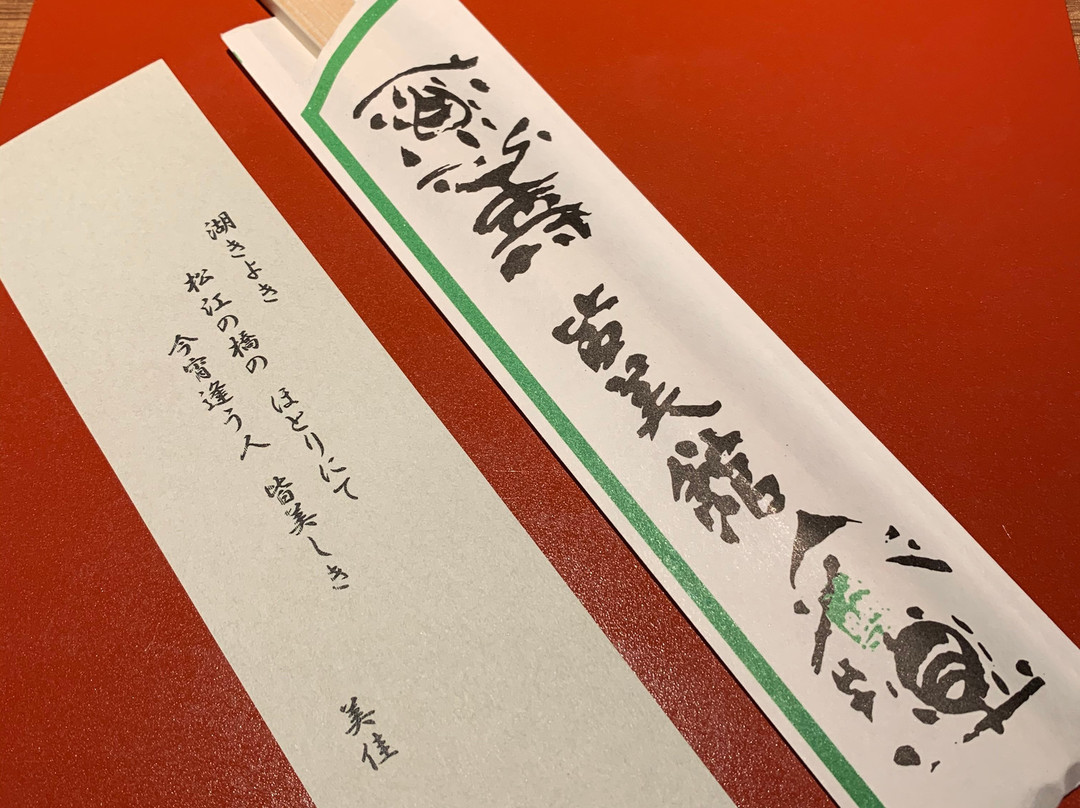 湖きよき
松江の橋の ほとりにて
今宵逢う人 皆美しき
美佳
皆美館